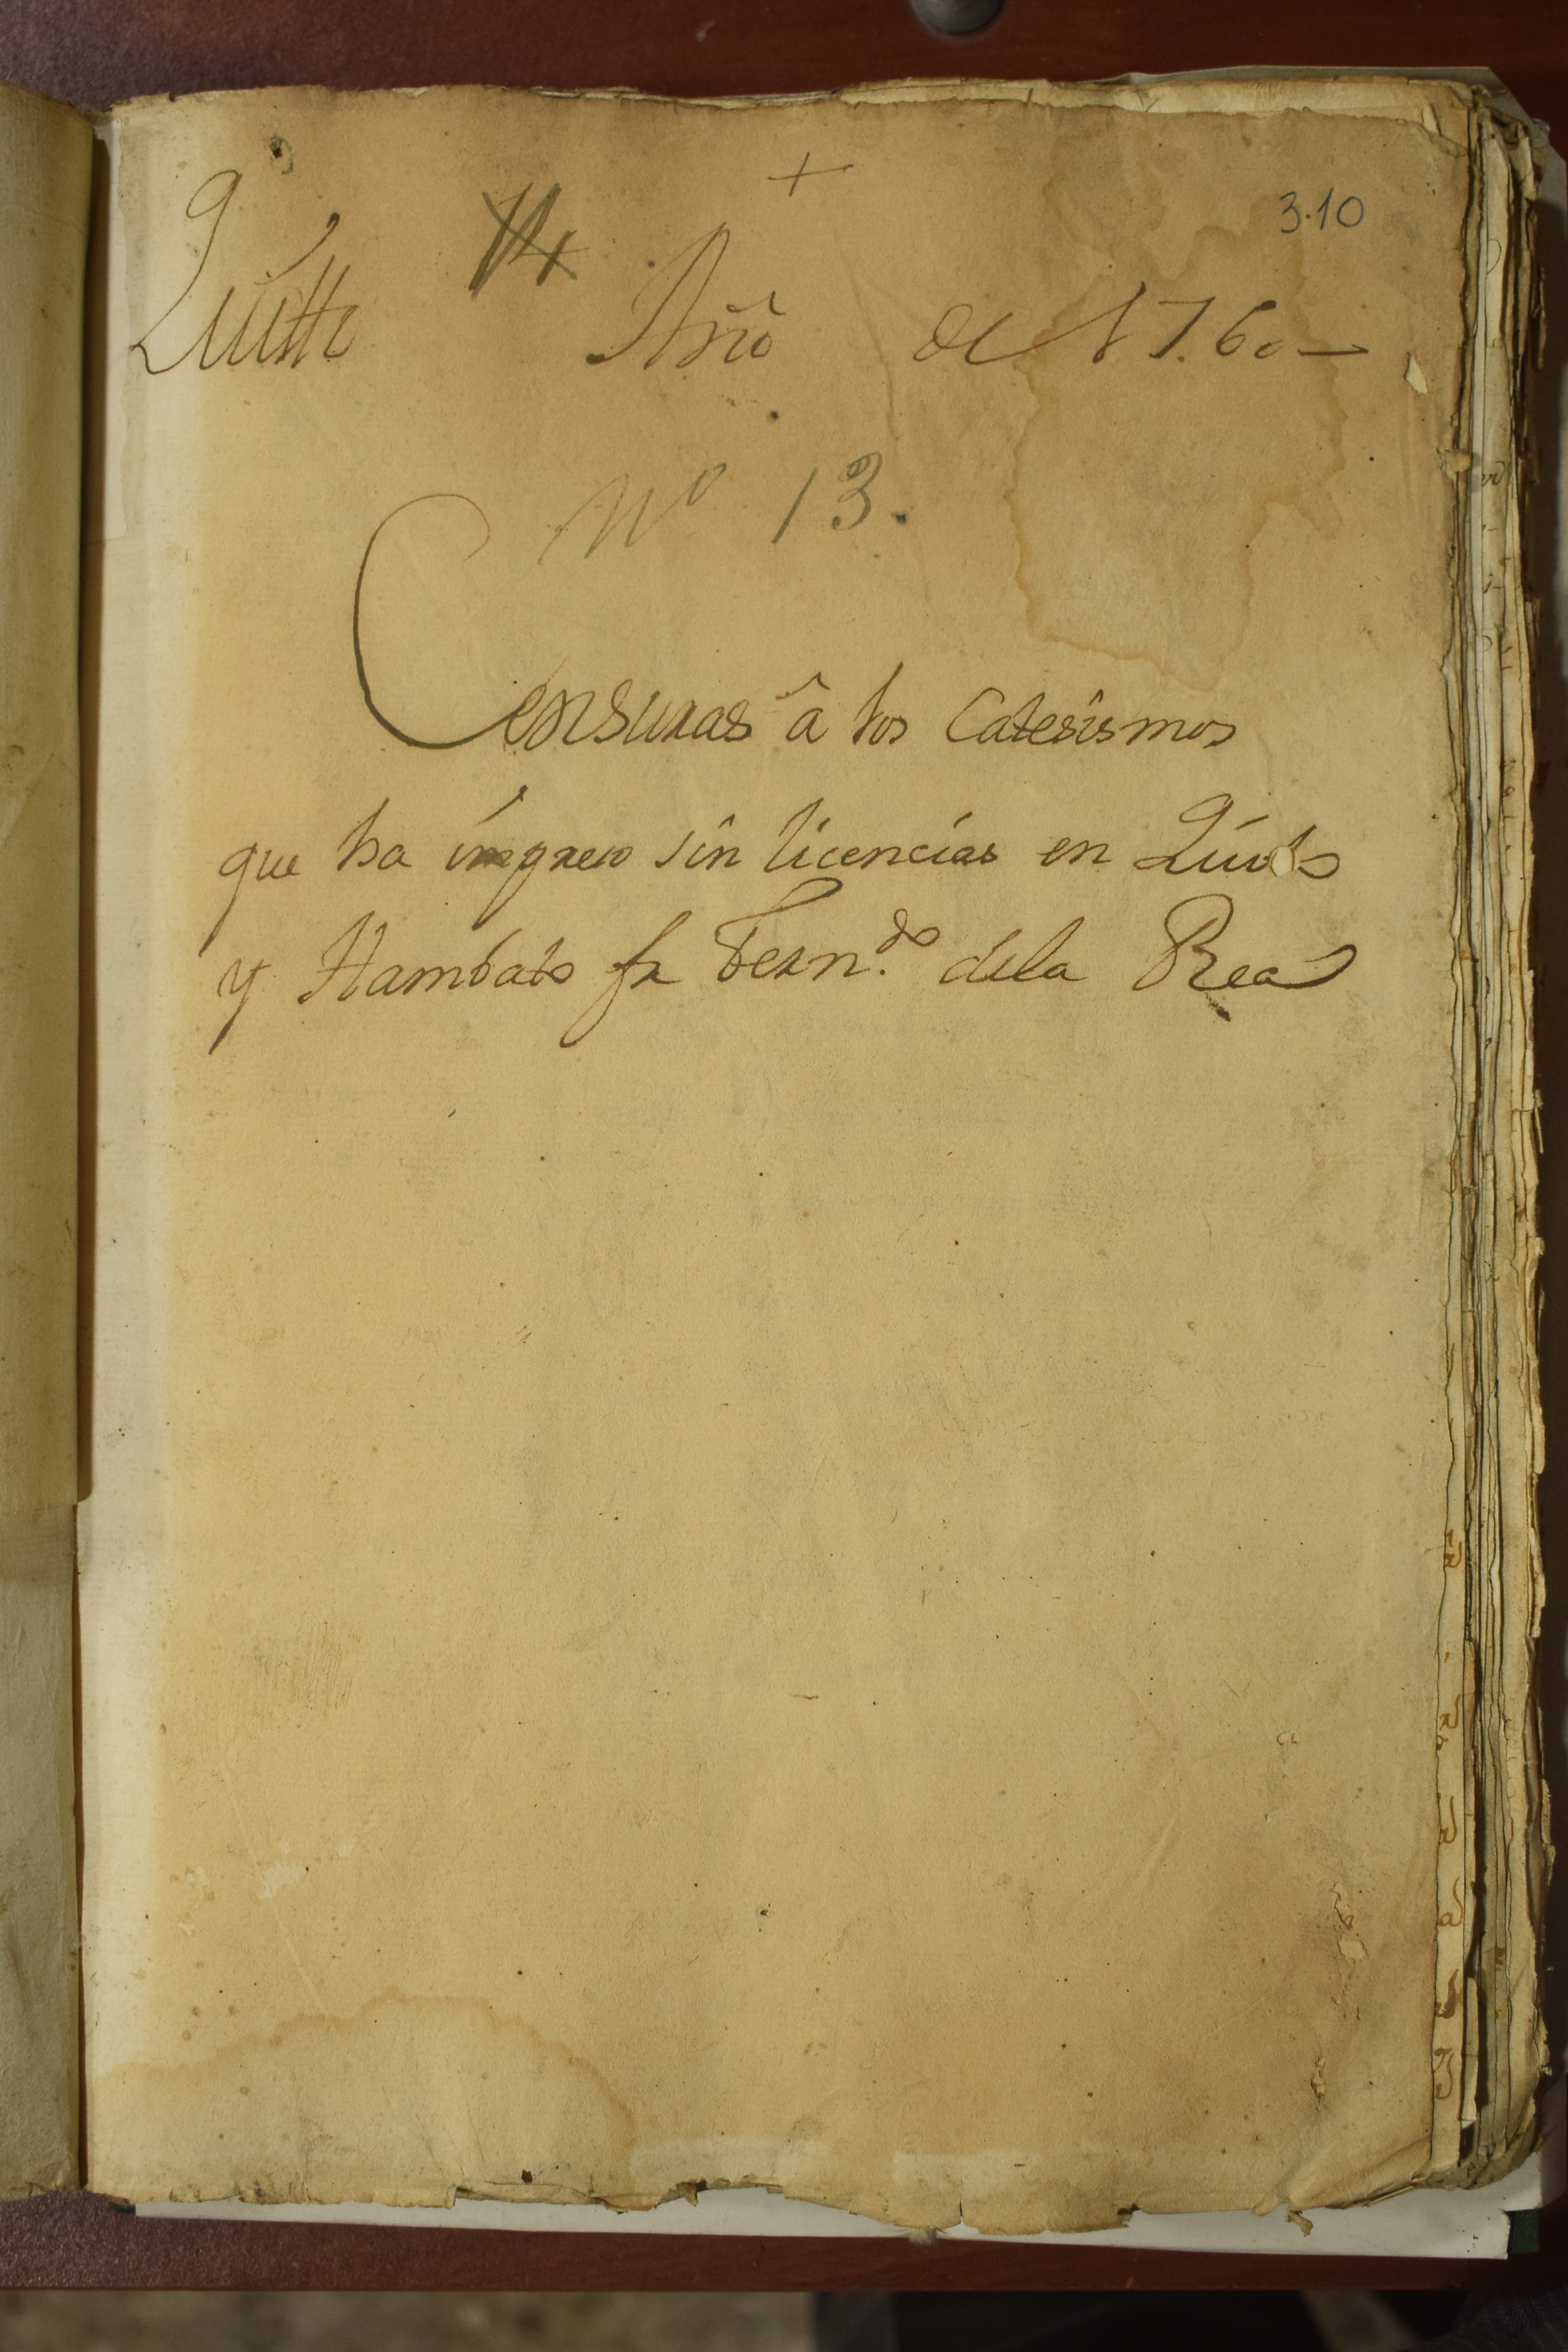 +
3.10
Quitto Año de 1760
Nº 13.
Censuras â los Catesismos
que ha impreso sin licencias en Quito
y Hambato fr Fern.do dela Rea